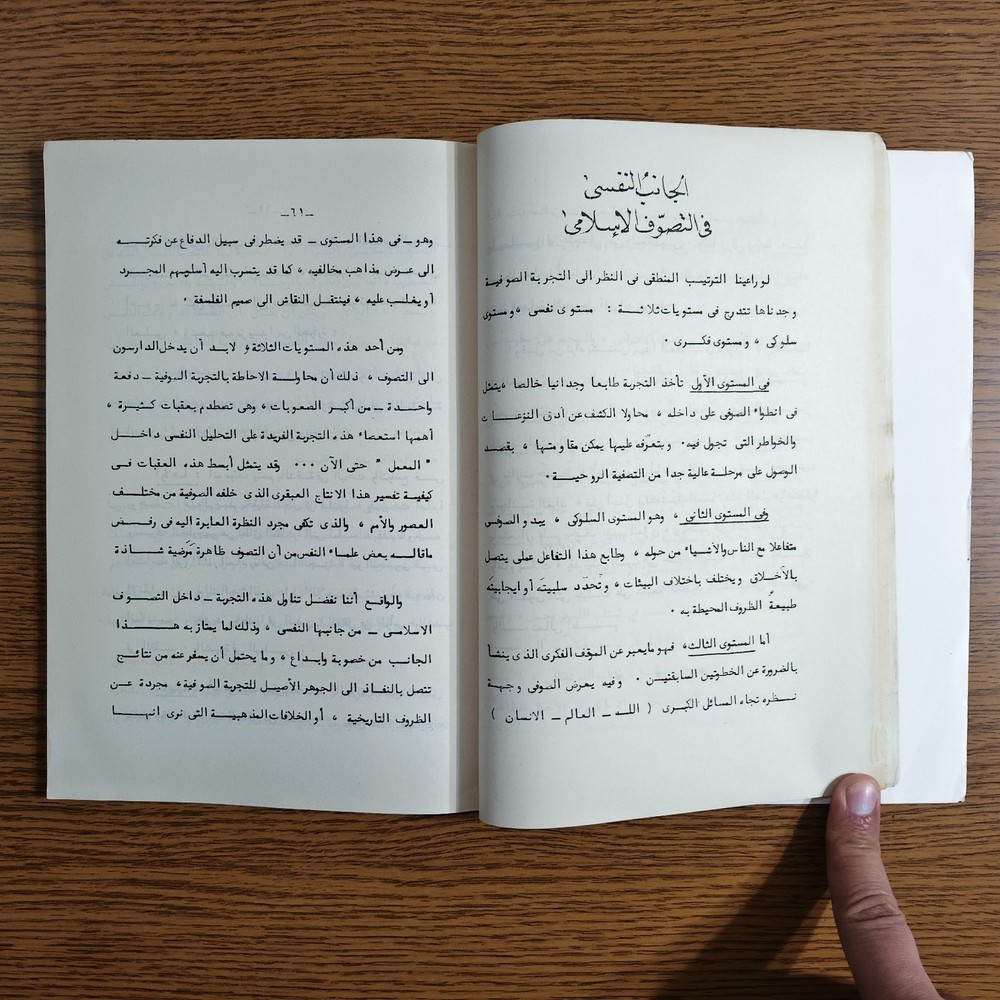 الجانب النفسى
فى التصوّف الإسلامى
لو راعينا الترتيب المنطقى فى النظر الى التجربة الصوفية
وجدناها تتدرج فى مستويات ثلاثة : مستوى نفسى ، ومستوى
سلوكى ، ومستوى فكرى .
فى المستوى الأول تأخذ التجربة طابعا وجدانيا خالصا ، يتمثل
فى انطواء الصوفى على داخله ، محاولا الكشف عن أدق النزعات
والخواطر التى تجول فيه . وبتعرّفه عليها يمكن مقاومتها ، بقصد
الوصول على مرحلة عالية جدا من التصفية الروحية .
وفى المستوى الثانى ، وهو المستوى السلوكى ، يبدو الصوفى
متفاعلا مع الناس والأشياء من حوله ، وطابع هذا التفاعل عملى يتصل
بالأخلاق ويختلف باختلاف البيئات ، وتحدّد سلبيتَه أو ايجابيتَه
طبيعةُ الظروف المحيطة به .
أما المستوى الثالث ، فهو ما يعبر عن الموقف الفكرى الذى ينشأ
بالضرورة عن الخطوتين السابقتين . وفيه يعرض الصوفى وجهة
نظره تجاه المسائل الكبرى ( الله ـ العالم ـ الانسان )
ـ٦١ـ
وهو ـ فى هذا المستوى ـ قد يضطر فى سبيل الدفاع عن فكرته
الى عرض مذاهب مخالفيه ، كما قد يتسرب اليه أسلوبهم المجرد
أو يغلب عليه ، فينتقل النقاش الى صميم الفلسفة .
ومن أحد هذه المستويات الثلاثة ، لابد أن يدخل الدارسون
الى التصوف ، ذلك أن محاولة الاحاطة بالتجربة الصوفية ـ دفعة
واحدة ـ من أكبر الصعوبات ، وهى تصطدم بعقبات كثيرة ،
أهمها استعصاء هذه التجربة الفريدة على التحليل النفسى داخل
" المعمل " حتى الآن ... وقد يتمثل أبسط هذه العقبات فى
كيفية تفسير هذا الانتاج العبقرى الذى خلفه الصوفية من مختلف
العصور والأمم ، والذى تكفى مجرد النظرة العابرة اليه فى رفض
ماقاله بعض علماء النفس من أن التصوف ظاهرة مَرَضية شاذة
والواقع أننا نفضل تناول هذه التجربة ـ داخل التصوف
الاسلامى ـ من جانبها النفسى ، وذلك لما يمتاز به هذا
الجانب من خصوبة وابداع ، وما يحتمل أن يسفر عنه من نتائج
تتصل بالنفاذ الى الجوهر الأصيل للتجربة الصوفية ، مجردة عن
الظروف التاريخية ، أو الخلافات المذهبية التى نرى انها